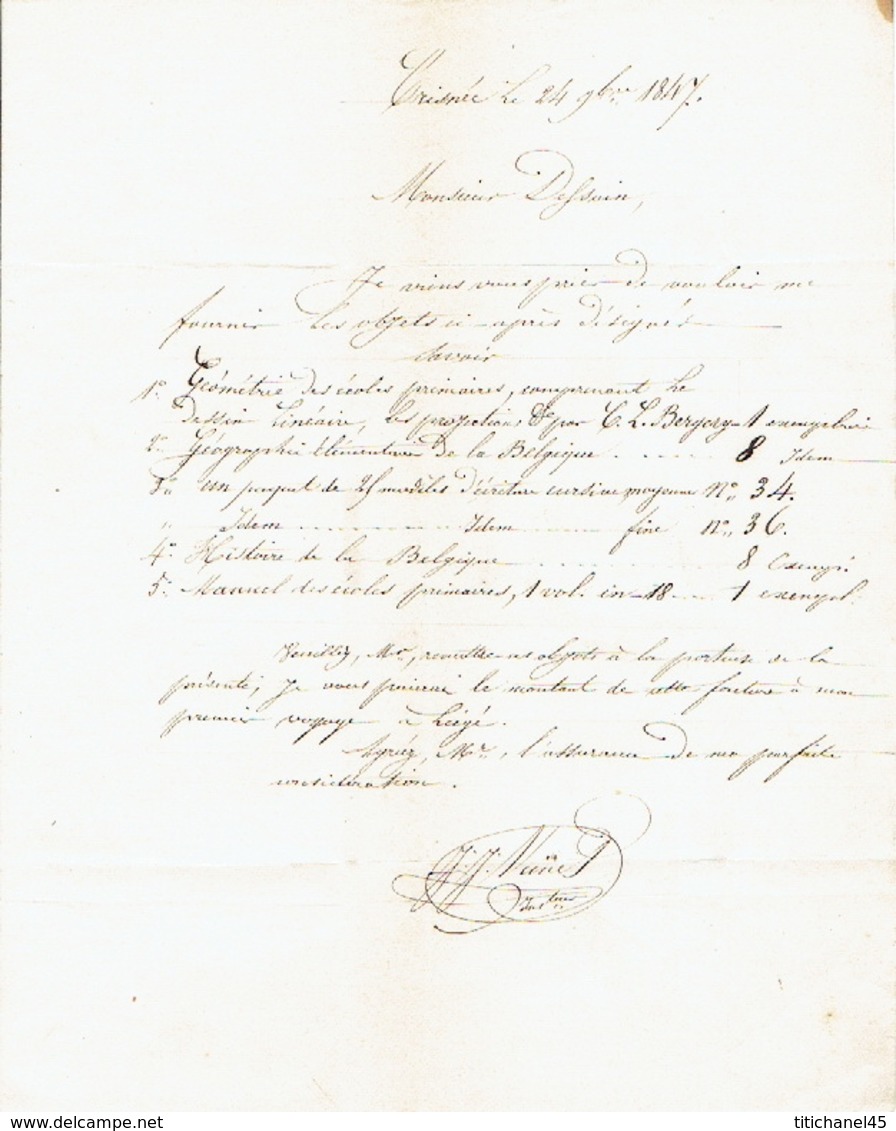 Crisnée le 24 9bre 1847.
Monsieur Dessain,
Je viens vous prier de vouloir me
fournir les objets ci-après désignés
Savoir
1°. Géométrie des écoles primaires, comprenant le
dessin linéaire, les projections &c par C. L. Bergery 1 exemplaire
2° Géographie élémentaire de la Belgique . . . . . 8 Idem
3° un paquet de 25 modèles d'écriture cursive moyenne N° 34.
" Idem Idem fine N° 36.
4° Histoire de la Belgique 8 exempl.
5° Manuel des écoles primaires, 1 vol. in-18 1 exempl.
Veuillez, Mr, remettre ces objets à la porteuse de la
présente, je vous paierai le montant de votre facture à mon
premier voyage à Liége.
Agréez, Mr., l'assurance de ma parfaite
considération.
J. J.
Inst
titichanel45